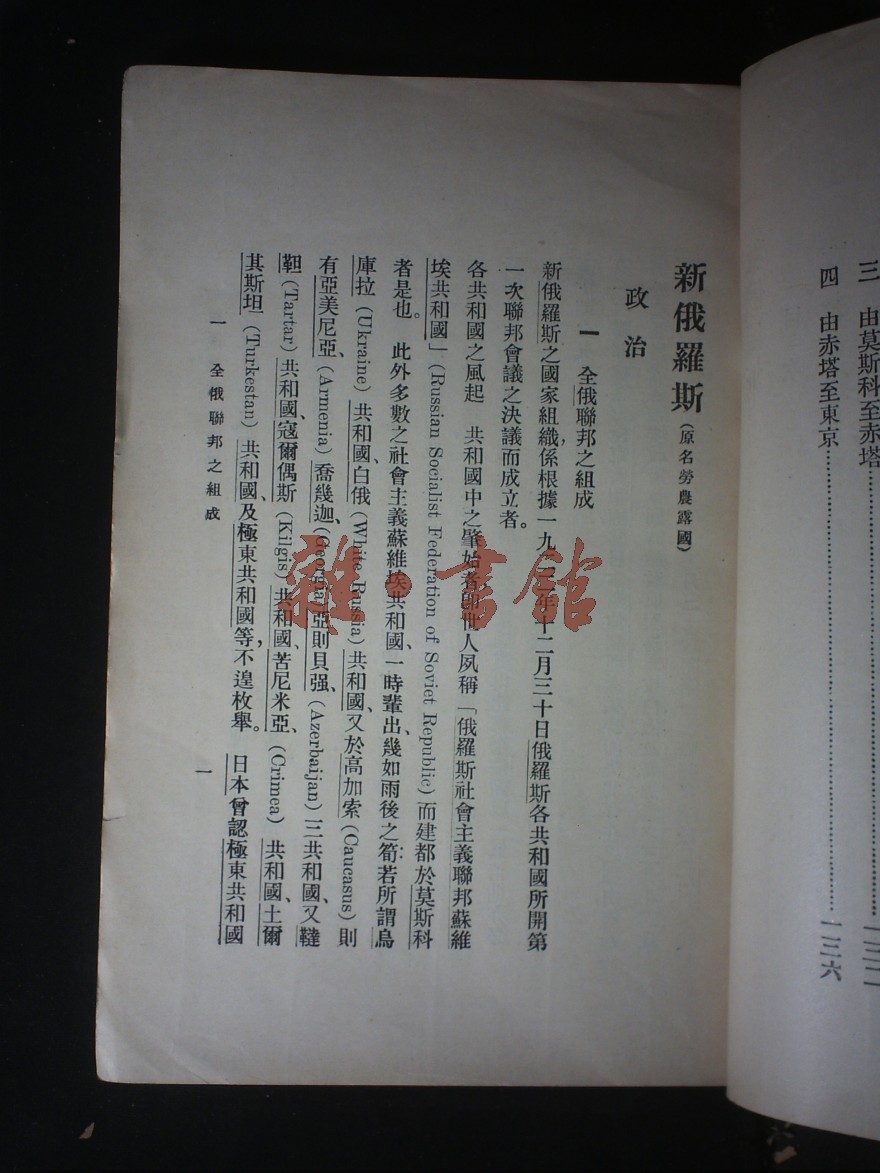 三　由莫斯科至赤塔……一三二
四　由赤塔至東京……一三六
新俄羅斯(原名勞農露國)
政治
一　全俄聯邦之組成
新俄羅斯之國家組織,係根據一九二二年十二月三十日俄羅斯各共和國所開第
一次聯邦會議之決議而成立者。
各共和國之風起　共和國中之肇始者,即世人夙稱「俄羅斯社會主義聯邦蘇維
埃共和國」(Russian Socialist Federation of Soviet Republic)而建都於莫斯科
者是也。　此外多數之社會主義蘇維埃共和國、一時輩出、幾如雨後之筍:若所謂烏
庫拉(Ukraine)共和國、白俄(White Russia)共和國、又於高加索(Caucasus)則
有亞美尼亞、(Armenia)喬幾迦、(Georgia)亞則貝强、(Azerbaijan)三共和國、又韃
靼(Tartar)共和國、寇爾偶斯(Kilgis)共和國、苦尼米亞、(Crimea)共和國、土爾
其斯坦(Turkestan)共和國、及極東共和國等,不遑枚舉。　日本曾認極東共和國
一　全俄聯邦之組成
一
雜·書館